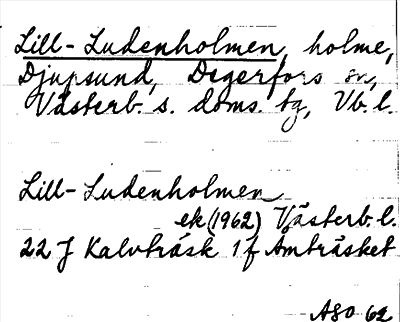 Lill-Ludenholmen, holme,
Djupsund, Degerfors sn,
Västerb. s. doms. tg, Vb. l.
Lill-Ludenholmen
ek (1962) Västerb. l.
22 J Kalvträsk 1 f Åmträsket
ASO 62